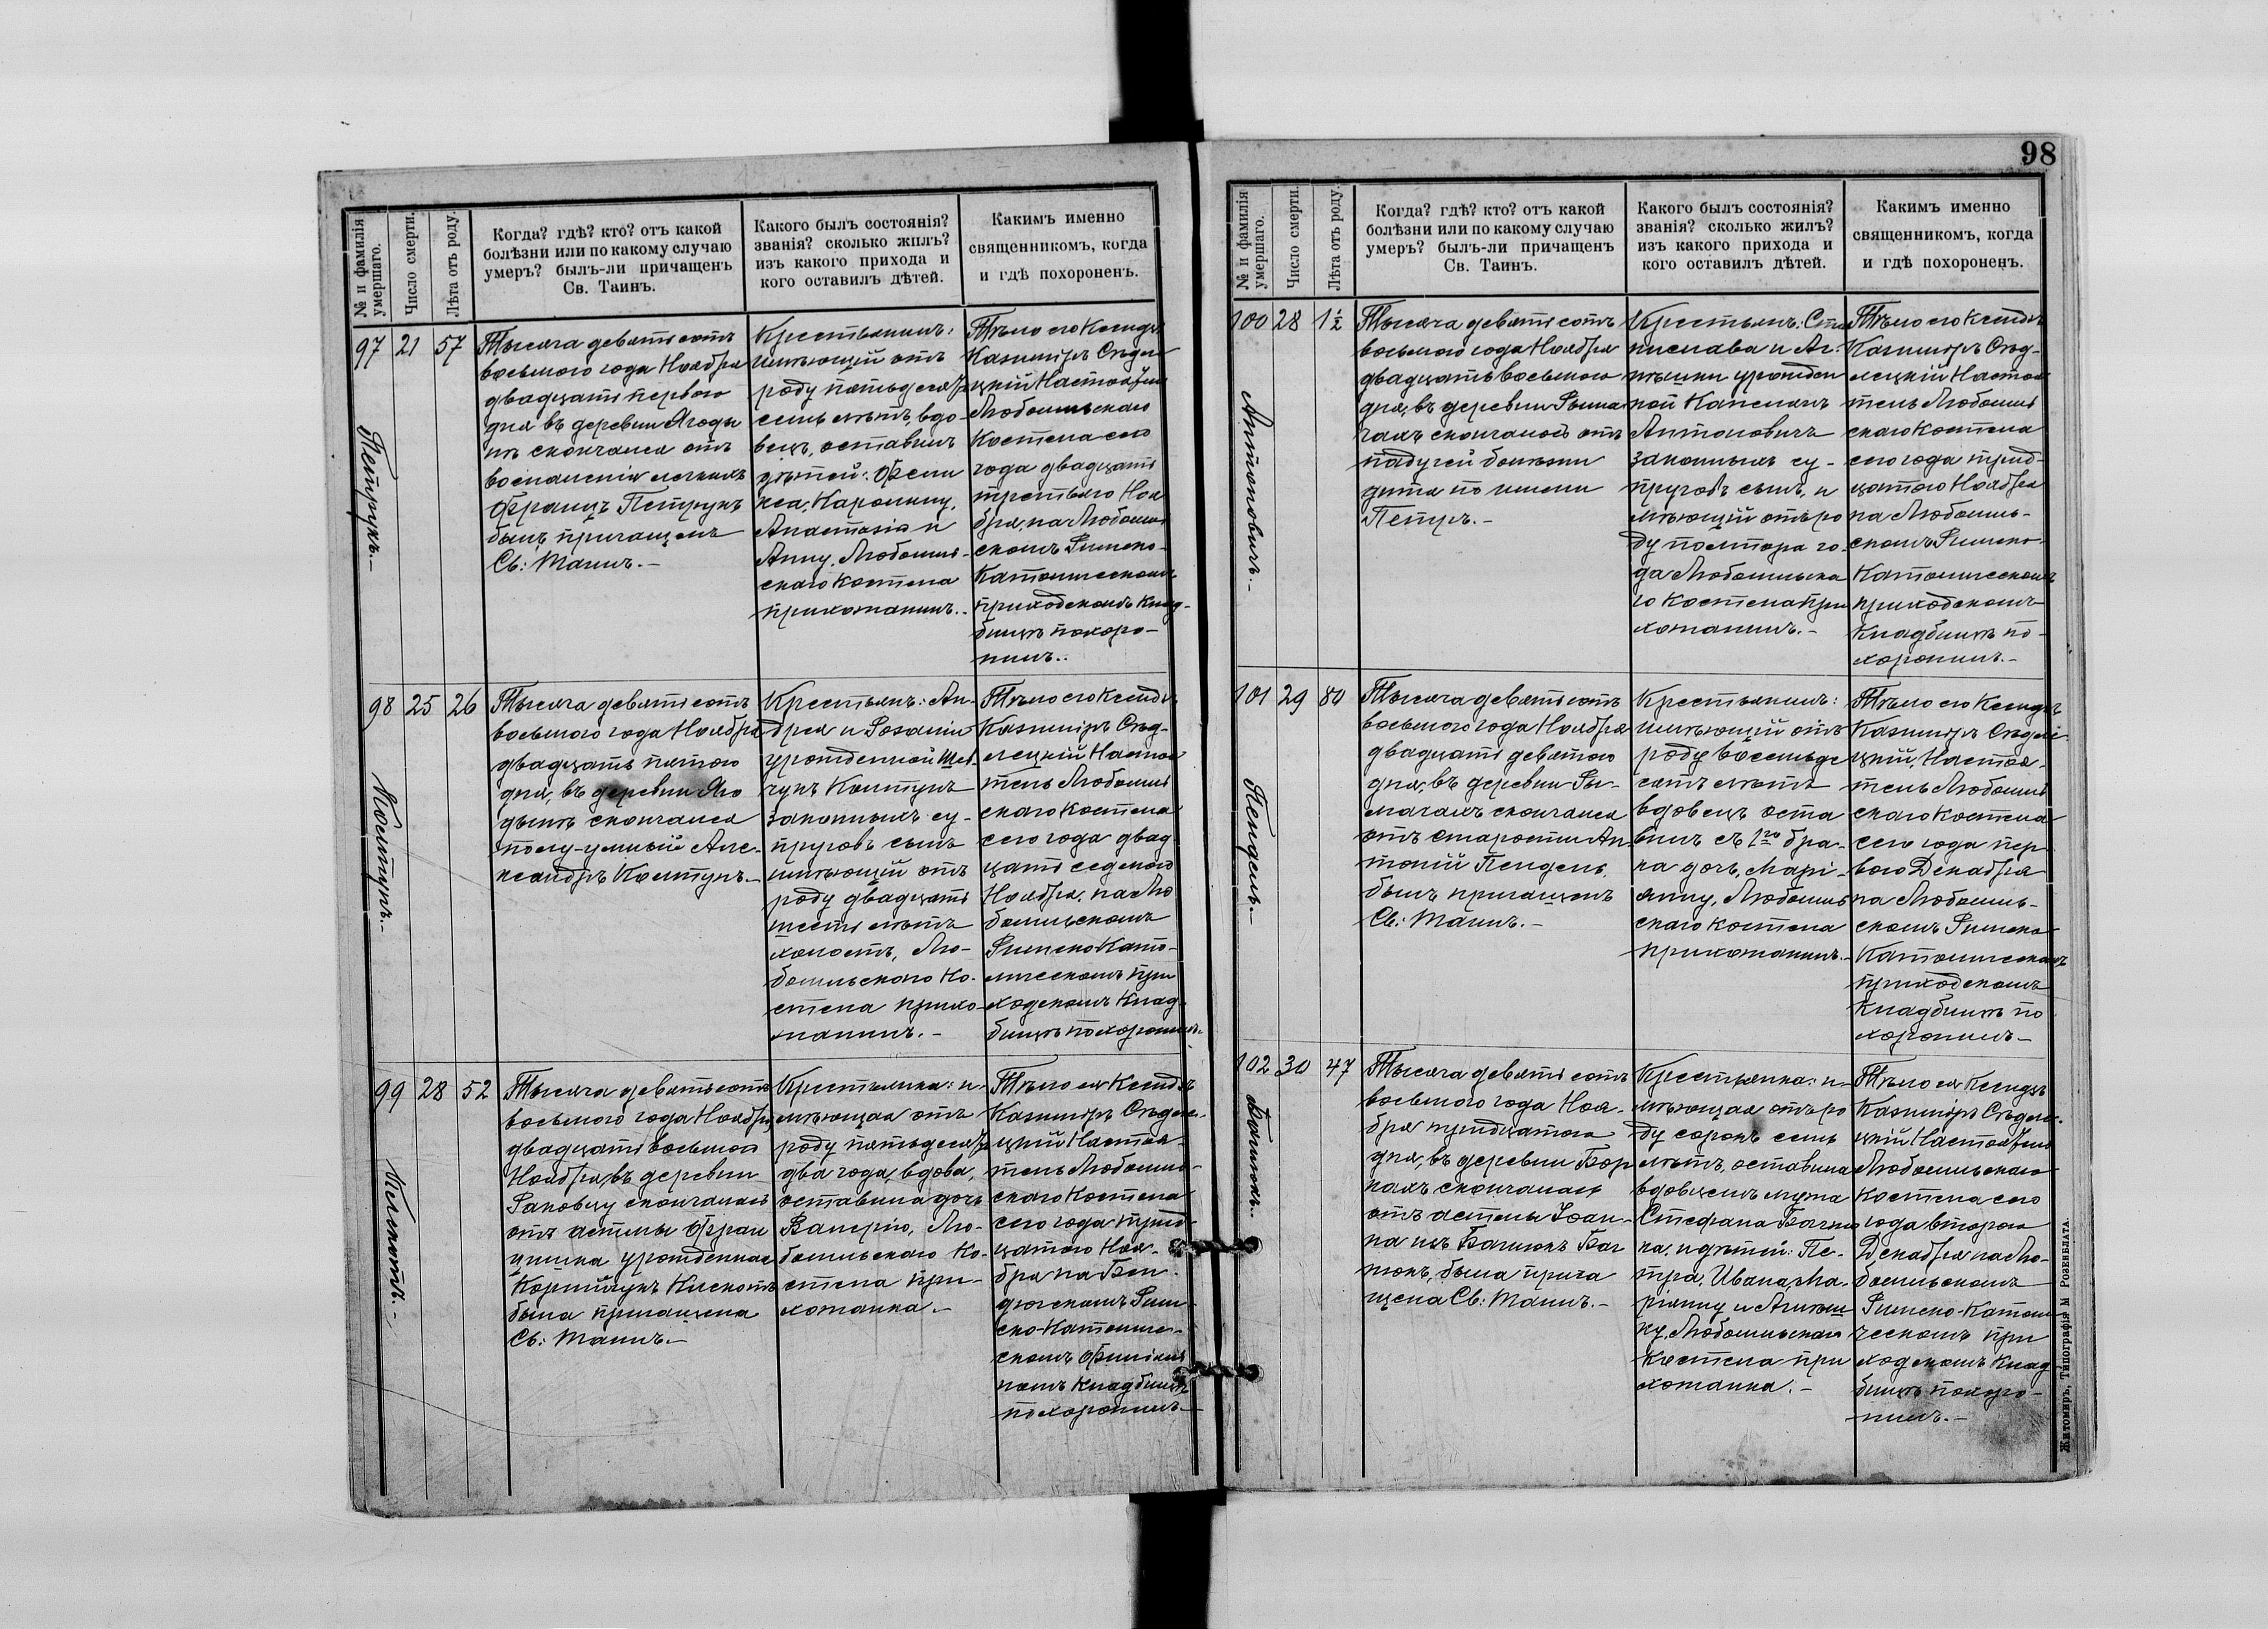 № и фамилія
умершаго.
Число смерти.
Лѣта отъ роду.
Когда? гдѣ? кто? отъ какой
болѣзни или по какому случаю
умеръ? былъ-ли причащенъ
Св. Таинъ.
Какого былъ состоянія?
званія? сколько жилъ?
изъ какого прихода и
кого оставилъ дѣтей.
Какимъ именно
священникомъ, когда
и гдѣ похороненъ.
97
Петрукъ.-
21
57
Тысяча девятьсотъ
восьмого года Ноября
двадцать первого
дня въ деревни Ягоды
нѣ скончался отъ
воспаленія легкихъ
Францъ Петрукъ
былъ причащенъ
Св: Таинъ.-
Крестьянинъ:
имѣющій отъ
роду пятьдесятъ
семь лѣтъ, вдо-
вецъ, оставилъ
дѣтей: Фели
кса, Каролину,
Анастазію и
Анну, Любомль-
скаго костела
прихожанинъ.-
Тѣло его Ксендзъ
Казиміръ Сѣдле
цкій Настоятель
Любомльскаго
Костела сего
года двадцать
третьяго Ноя
бря, на Любомль
скомъ Римско-
Католическомъ
приходскомъ клад-
бищѣ похоро-
нилъ..
98
Колтунъ.-
25
26
Тысяча девятьсотъ
восьмого года Ноября
двадцать пятого
дня, въ деревни Яго
дынѣ скончался
полу-умный Але-
ксандръ Колтунъ.-
Крестьянъ: Ан-
дрея и Розаліи
урожденной Шев-
чукъ Колтунъ
законныхъ су-
пруговъ сынъ
имѣющій отъ
роду двадцать
шесть лѣтъ
холостъ, Лю-
бомльскаго Ко-
стела прихо-
жанинъ.-
Тѣло его Ксендзъ
Казиміръ Сѣд-
лецкій Настоя
тель Любомль
скаго костела
сего года двад
цать седмого
Ноября, на Лю
бомльскомъ
Римско-Като-
лическомъ при
ходскомъ клад
бищѣ похоронилъ.
99
28
52
Тысяча девятьсотъ
восьмого года Ноября
двадцать восьмого
Ноября, въ деревни
Раковцу скончалась
отъ астмы Фран
цишка урожденная
была причащена
Св: Таинъ.-
Крестьянка: и-
мѣющая отъ
роду пятьдесятъ
два года, вдова,
оставила дочь
Валерію, Лю-
бомльскаго Ко-
стела при-
хожанка.-
Тѣло ея Ксендзъ
Казиміръ Сѣдле-
цкій Настоя-
тель Любомль-
скаго Костела
сего года трид
цатого Ноя-
бря на
скомъ Рим-
ско-Католиче-
скомъ Филіаль
номъ кладбищѣ
похоронилъ.-
98
№ и фамилія
умершаго.
Число смерти.
Лѣта отъ роду.
Когда? гдѣ? кто? отъ какой
болѣзни или по какому случаю
умеръ? былъ-ли причащенъ
Св. Таинъ.
Какого былъ состоянія?
званія? сколько жилъ?
изъ какого прихода и
кого оставилъ дѣтей.
Какимъ именно
священникомъ, когда
и гдѣ похороненъ.
100
Антоновичъ.-
28
1½
Тысяча девятьсотъ
восьмого года Ноября
двадцать восьмого
дня, въ деревни Рыма
чахъ скончалось отъ
падучей болѣзни
дитя по имени
Петръ.-
Крестьянъ: Ста
нислава и Аг-
нѣшки урожден
ной Капелянъ
Антоновичъ
законныхъ су-
пруговъ сынъ, и
мѣющій отъ ро
ду полтора го-
да Любомльска
го костела при
хожанинъ.-
Тѣло его Ксендзъ
Казиміръ Сѣд-
лецкій Настоя
тель Любомль
скаго Костела
сего года трид-
цатого Ноября
на Любомль-
скомъ Римско-
Католическомъ
приходскомъ
кладбищѣ по-
хоронилъ.-
101
Пендель.-
29
80
Тысяча девятьсотъ
восьмого года Ноября
двадцать девятого
дня, въ деревни Ры-
мачахъ скончался
отъ старости Ан
тоній Пендель,
былъ причащенъ
Св: Таинъ.-
Крестьянинъ:
имѣющій отъ
роду восемьде
сятъ лѣтъ
вдовецъ оста
вилъ съ 1го бра-
ка дочь, Марі-
янну, Любомль
скаго костела
прихожанинъ.-
Тѣло его Ксендзъ
Казиміръ Сѣдле
цкій, Настоя-
тель Любомль
скаго Костела
сего года пер
вого Декабря
на Любомль-
скомъ Римско
Католическомъ
приходскомъ
кладбищѣ по
хоронилъ.-
102
30
47
Тысяча девятьсотъ
восьмого года Ноя-
бря тридцатого
дня, въ деревни Бор
кахъ скончалась
отъ астмы Іоан-
на
была прича
щена Св: Таинъ.-
Крестьянка: и-
мѣющая отъ ро
ду сорокъ семь
лѣтъ, оставила
вдовцемъ мужа
Стефана
ка, и дѣтей: Пе-
тра, Ивана, Ма-
ріянну и Агнѣш
ку, Любомльскаго
Костела при
хожанка.-
Тѣло ея Ксендзъ
Казиміръ Сѣдле-
цкій Настоятель
Любомльскаго
Костела сего
года второго
Декабря на Лю-
бомльскомъ
Римско-Католи
ческомъ при
ходскомъ клад
бищѣ похоро-
нилъ.-
Житомиръ, Типографія М Розенблата.